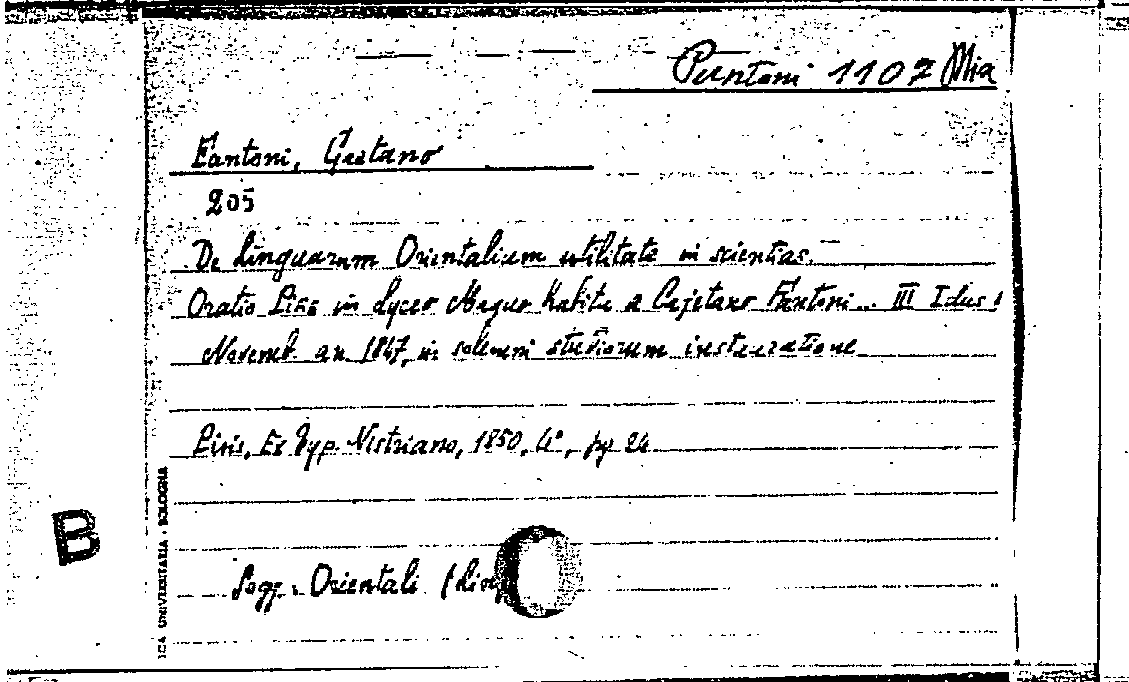 Puntoni 1107 Mia
Fantoni, Gaetano
205
De linguarum Orientalium utilitate in scientias.
Oratio in Lyceo Magno habita a Cajetano Fantoni... III Idus
Novemb. an. 1847, in solemni studiorum instauratione
Pisis, Ex Typ. Nistriano, 1850, 4°, pp 24
B
UNIVERSITARIA - BOLOGNA
Sogg. Orientali